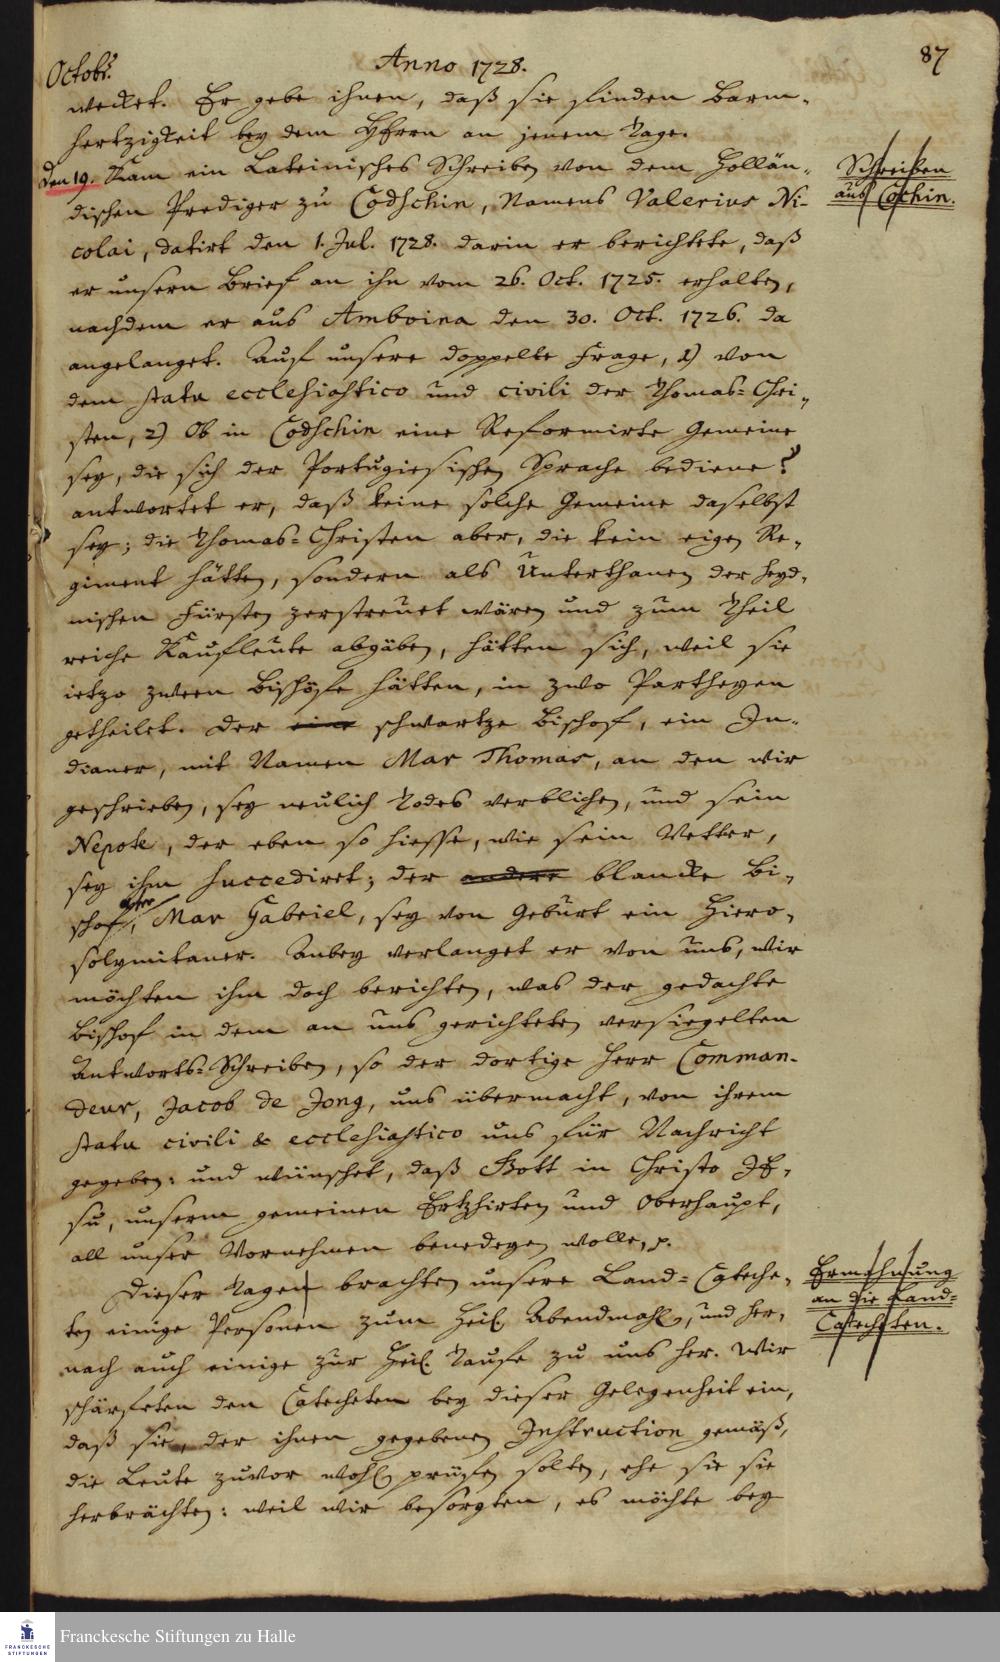 Octobr.
Anno 1728.
87
wecket. Er gebe ihnen, daß sie finden Barm-
hertzigkeit bey dem HErrn an jenem Tage.
Den 19. Kam ein Lateinisches Schreiben von dem Hollän-
Schreiben
aus Cochin.
dischen Prediger zu Codschin, Namens Valerius Ni-
colai, datirt den 1. Jul. 1728. darin er berichtete, daß
er unsern Brief an ihn vom 26. Oct. 1725. erhalten,
nachdem er aus Amboina den 30. Oct. 1726. da
angelanget. Auf unsere doppelte Frage, 1) von
dem statu ecclesiastico und civili der Thomas-Chri-
sten, 2) Ob in Codschin eine Reformirte Gemeine
sey, die sich der Portugiesischen Sprache bediene?
antwortet er, daß keine solche Gemeine daselbst
sey; die Thomas-Christen aber, die kein eigen Re-
giment hätten, sondern als Unterthanen der heyd-
nischen Fürsten zerstreuet wären und zum Theil
reiche Kaufleute abgäben, hätten sich, weil sie
ietzo zween Bischöfe hätten, in zwo Partheyen
getheilet. Der eine schwartze Bischof, ein In-
dianer, mit Namen Mar Thomas, an den wir
geschrieben, sey neulich Todes verblichen, und sein
Nepote, der eben so hiesse, wie sein Vetter,
sey ihm succediret; der andere blancke Bi-
schof aber, Mar Gabriel, sey von Geburt ein Hiero-
solymitaner. Anbey verlanget er von uns, wir
möchten ihm doch berichten, was der gedachte
Bischof in dem an uns gerichteten versiegelten
Antworts-Schreiben, so der dortige Herr Comman-
deur, Jacob de Jong, uns übermacht, von ihrem
statu civili & ecclesiastico uns für Nachricht
gegeben: und wünschet, daß Gott in Christo JE-
su, unserm gemeinen Ertzhirten und Oberhaupt,
all unser Vornehmen benedeyen wolle, p.
Dieser Tagen brachten unsere Land-Cateche-
Ermahnung
an die Land-
Catecheten.
ten einige Personen zum Heil. Abendmahl, und her-
nach auch einige zur Heil. Taufe zu uns her. Wir
schärfeten den Catecheten bey dieser Gelegenheit ein,
daß sie, der ihnen gegebenen Instruction gemäß,
die Leute zuvor wohl prüfen solten, ehe sie sie
herbrächten: weil wir besorgten, es möchte bey
FRANCKESCHE
STIFTUNGEN
Franckesche Stiftungen zu Halle